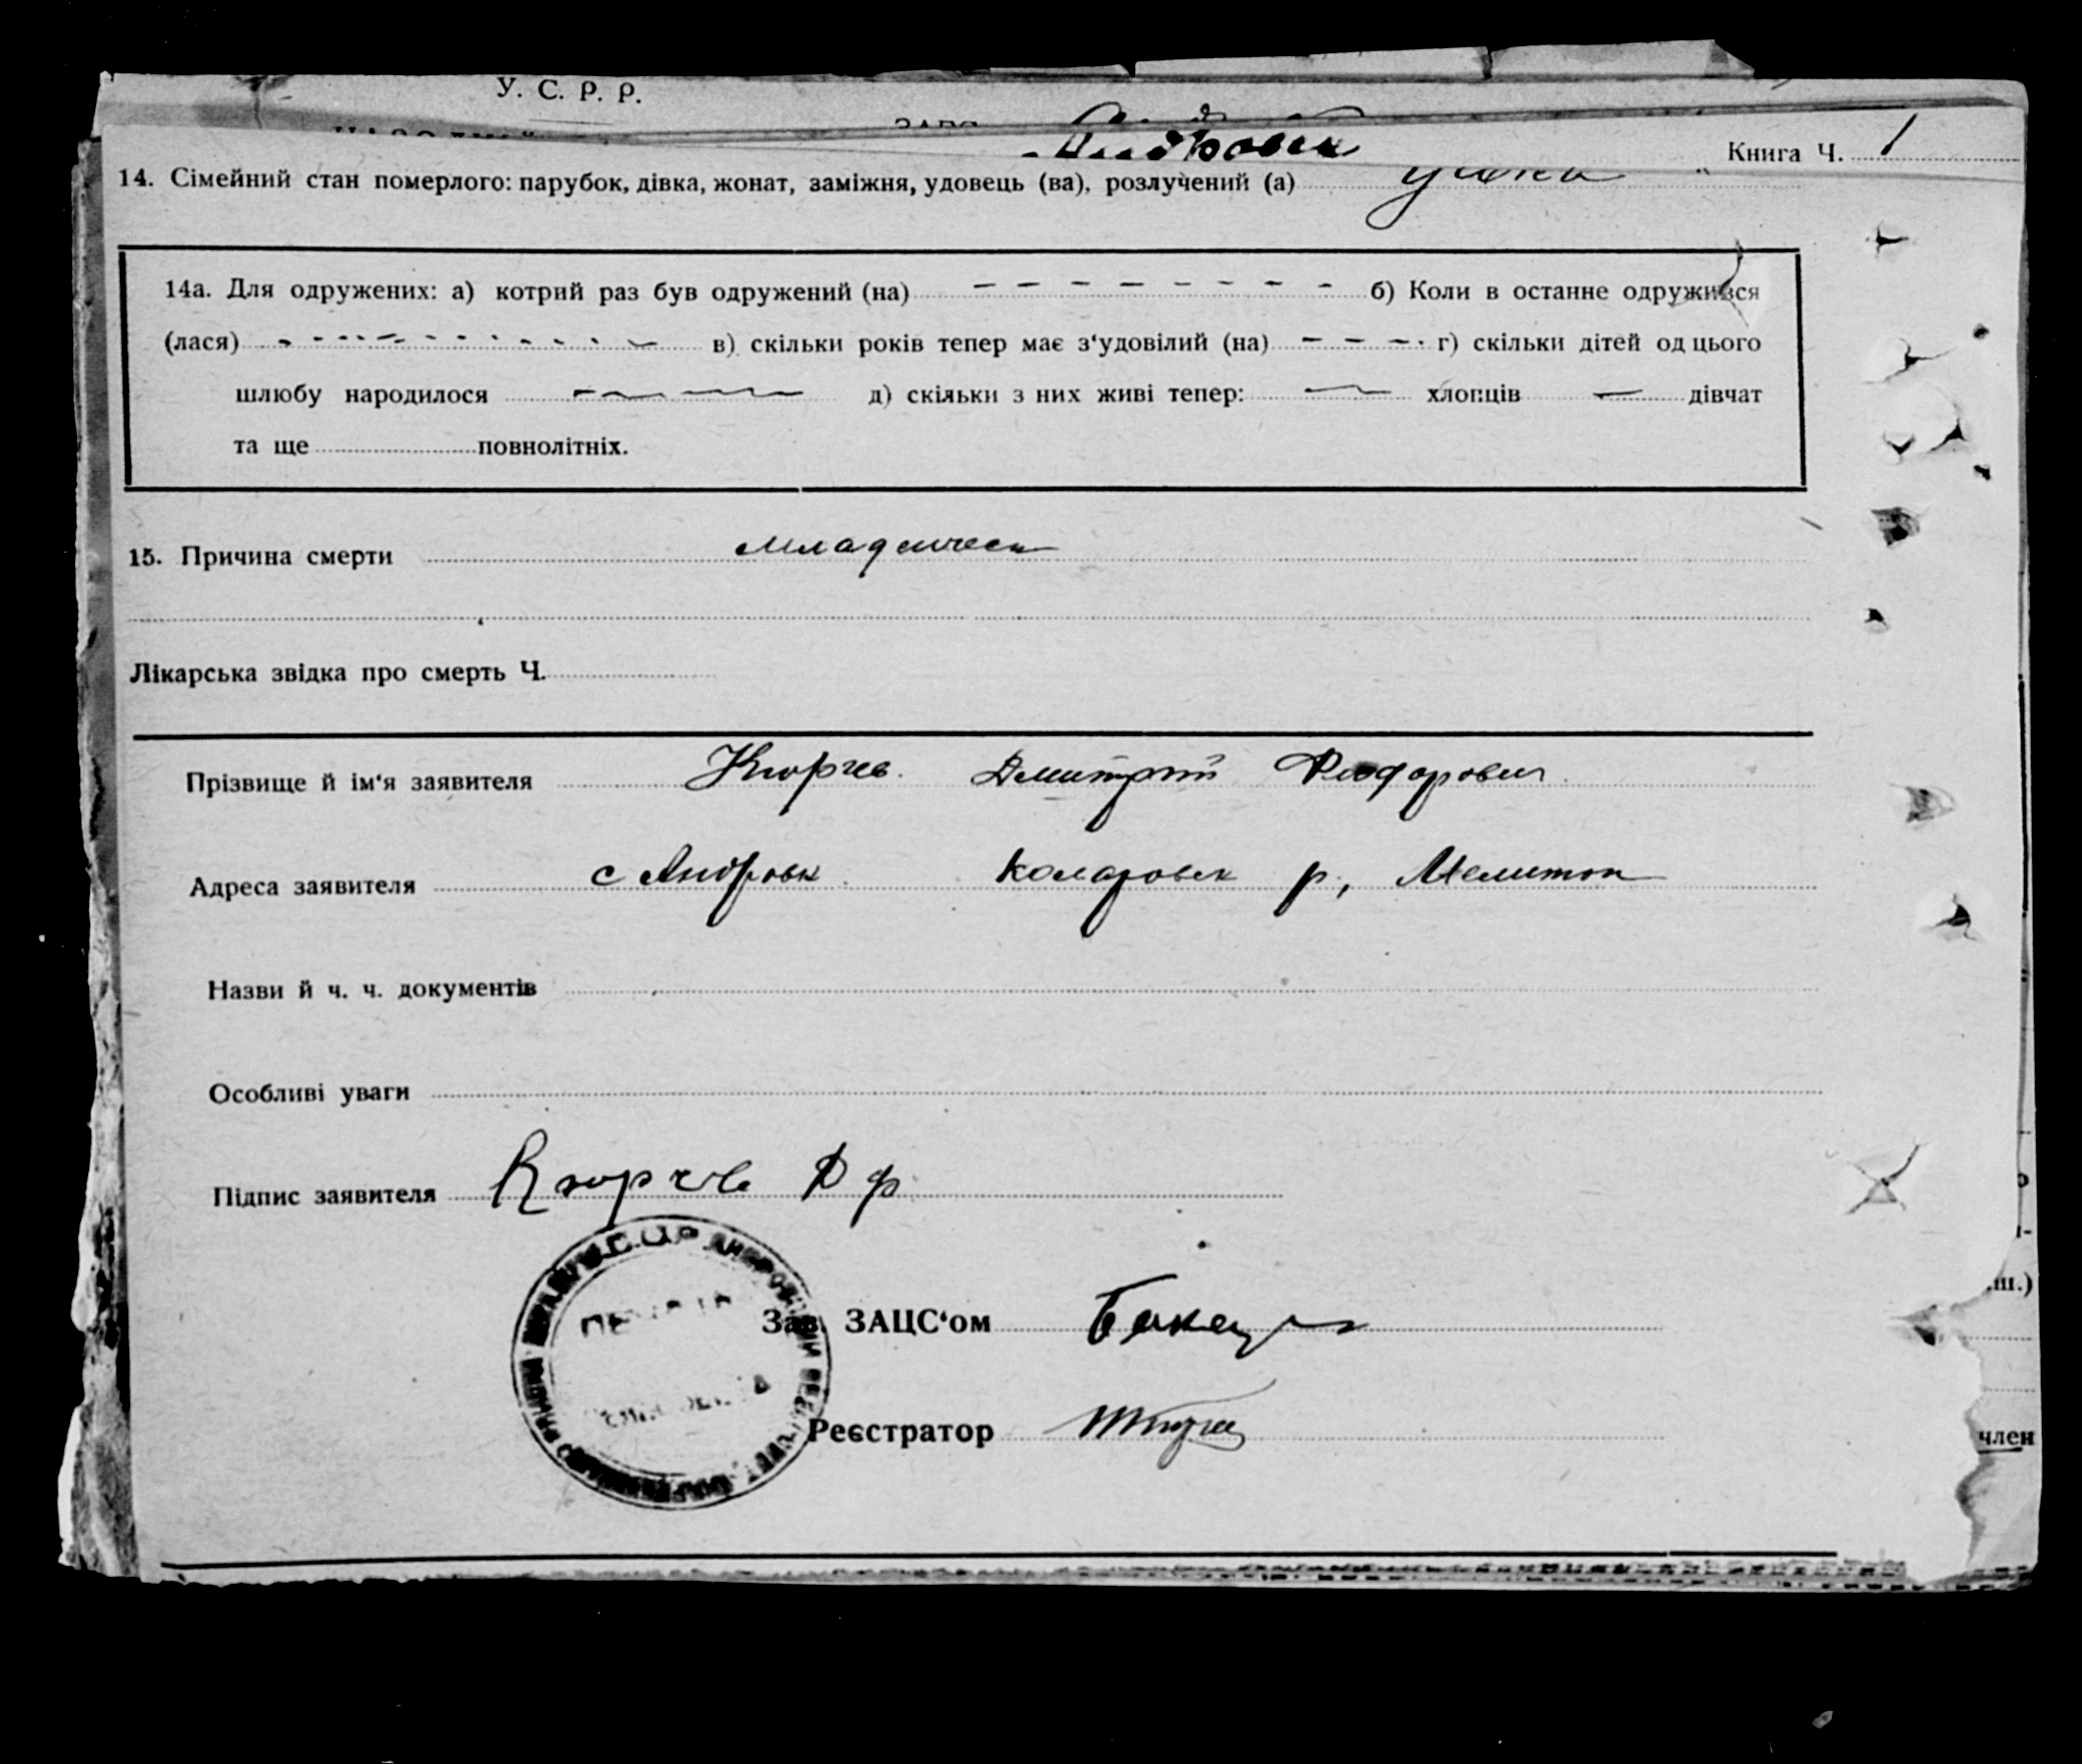 У. С. Р. Р.
Книга Ч. 1
14. Сімейний стан померлого: парубок, дівка, жонат, заміжня, удовець (ва), розлучений (а)
14а. Для одружених: а) котрий раз був одружений (на) б) Коли в останне одружився
(лася) в) скільки років тепер має з‘удовілий (на) г) скільки дітей од цього
шлюбу народилося д) скільки з них живі тепер: хлопців дівчат
та ще повнолітніх.
15. Причина смерти младенческ
Лікарська звідка про смерть Ч.
Прізвище й ім‘я заявителя Кюрчев Дмитрий Федорович
Адреса заявителя с Андровк Коларовск р, Мелитоп
Назви й ч. ч. документів
Особливі уваги
Підпис заявителя Кюрчев Д ф
Зав. ЗАЦС‘ом
Реєстратор
.ш.)
член